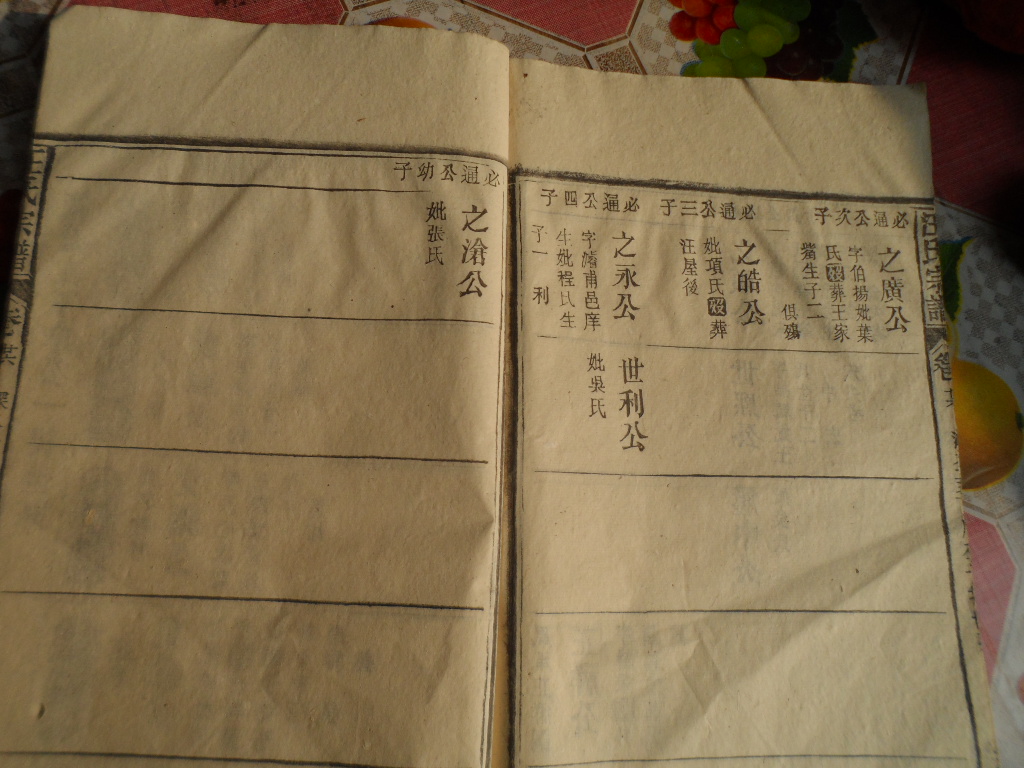 汪氏宗譜
必通公次子
之廣公
字伯揚妣葉
氏歿葬王家
觜生子二
俱殤
必通公三子
之皓公
妣項氏歿葬
汪屋後
必通公四子
之永公
字濬甫邑庠
生妣程氏生
子一 利
世利公
妣吳氏
必通公幼子
之滄公
妣張氏
汪氏宗譜